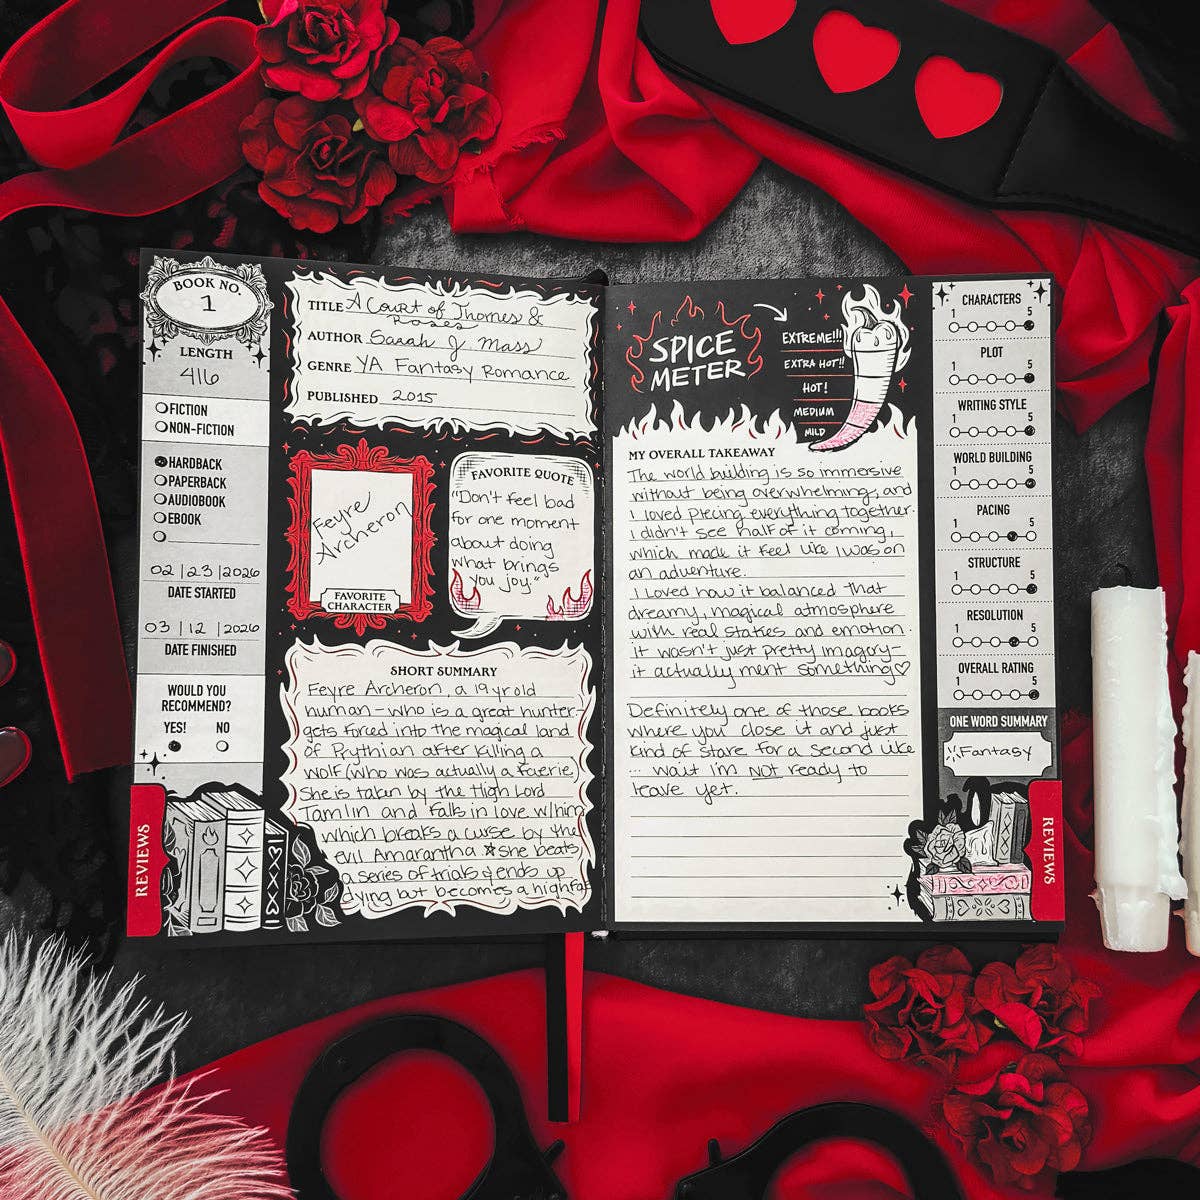 BOOK NO.
1
LENGTH
416
FICTION
NON-FICTION
HARDBACK
PAPERBACK
AUDIOBOOK
EBOOK
02 | 23 | 2026
DATE STARTED
03 | 12 | 2026
DATE FINISHED
WOULD YOU
RECOMMEND?
YES! NO
REVIEWS
TITLE A Court of Thornes &
Roses
AUTHOR Sarah J Mass
GENRE YA Fantasy Romance
PUBLISHED 2015
Feyre
Archeron
FAVORITE
CHARACTER
FAVORITE QUOTE
"Don't feel bad
for one moment
about doing
what brings
you joy."
SHORT SUMMARY
Feyre Archeron, a 19 yr old
human - who is a great hunter-
gets forced into the magical land
of Prythian after killing a
wolf (who was actually a Faerie)
She is taken by the High Lord
Tamlin and falls in love w/him
which breaks a curse by the
evil Amarantha ☆ She beats
a series of trials & ends up
dying but becomes a highfae
SPICE
METER
EXTREME!!!
EXTRA HOT!!
HOT!
MEDIUM
MILD
MY OVERALL TAKEAWAY
The world building is so immersive
without being overwhelming, and
I loved piecing everything together.
I didn't see half of it coming,
which made it feel like I was on
an adventure.
I loved how it balanced that
dreamy, magical atmosphere
with real stakes and emotion.
it wasn't just pretty imagery-
it actually ment something♡
Definitely one of those books
where you close it and just
kind of stare for a second like
... wait I'm NOT ready to
leave yet.
CHARACTERS
1 5
PLOT
1 5
WRITING STYLE
1 5
WORLD BUILDING
1 5
PACING
1 5
STRUCTURE
1 5
RESOLUTION
1 5
OVERALL RATING
1 5
ONE WORD SUMMARY
Fantasy
REVIEWS